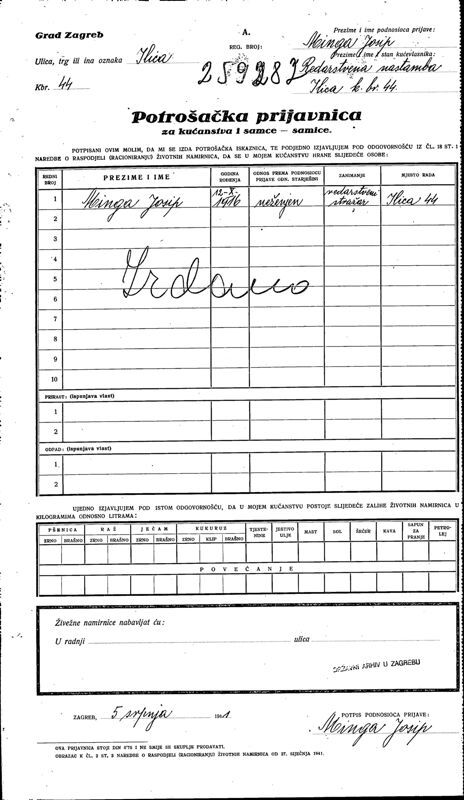 Grad Zagreb
A.
REG. BROJ:
259287
Prezime i ime podnosioca prijave:
Minga Josip
Ulica, trg ili ina oznaka Ilica
Prezime i ime i stan kućevlasnika:
Redarstvena nastamba
Kbr. 44
Ilica k. br. 44.
Potrošačka prijavnica
za kućanstva i samce — samice.
POTPISANI OVIM MOLIM, DA MI SE IZDA POTROŠAČKA ISKAZNICA, TE PODJEDNO IZJAVLJUJEM POD ODGOVORNOŠĆU IZ ČL. 18 ST. 1
NAREDBE O RASPODJELI (RACIONIRANJU) ŽIVOTNIH NAMIRNICA, DA SE U MOJEM KUĆANSTVU HRANE SLIJEDEĆE OSOBE:
REDNI BROJ PREZIME I IME GODINA ROĐENJA ODNOS PREMA PODNOSIOCU PRIJAVE ODN. STARJEŠINI ZANIMANJE MJESTO RADA
1 Minga Josip 12-X. 1916 neženjen redarstveni stražar Ilica 44
2
3
4
5
6
7
8
9
10
PRIRAST: (ispunjava vlast)
1
2
OTPAD: (ispunjava vlast)
1
2
UJEDNO IZJAVLJUJEM POD ISTOM ODGOVORNOŠĆU, DA U MOJEM KUĆANSTVU POSTOJE SLIJEDEĆE ZALIHE ŽIVOTNIH NAMIRNICA U
KILOGRAMIMA ODNOSNO LITRAMA:
PŠENICA RAŽ JEČAM KUKURUZ TJESTENINE JESTIVO ULJE MAST SOL ŠEĆER KAVA SAPUN ZA PRANJE PETROLEJ
ZRNO BRAŠNO ZRNO BRAŠNO ZRNO BRAŠNO ZRNO KLIP BRAŠNO
POVEĆANJE
Živežne namirnice nabavljat ću:
U radnji ulica
DRŽAVNI ARHIV U ZAGREBU
ZAGREB, 5 srpnja 1941
POTPIS PODNOSIOCA PRIJAVE:
Minga Josip
OVA PRIJAVNICA STOJI DIN 0'75 I NE SMIJE SE SKUPLJE PRODAVATI.
OBRAZAC K ČL. 2 ST. 2 NAREDBE O RASPODJELI (RACIONIRANJU) ŽIVOTNIH NAMIRNICA OD 27. SIJEČNJA 1941.